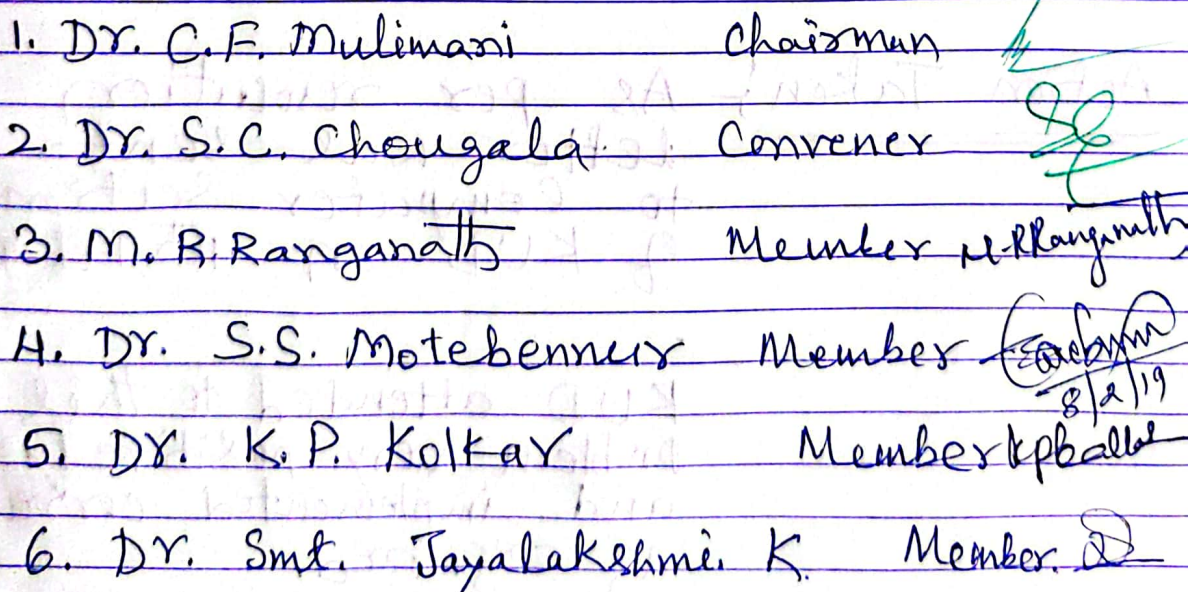 1. Dr. C.F. Mulimani Chairman
2. Dr. S.C. Chougala. Convener
3. M. R. Ranganath Member M.R Ranganath
4. Dr. S.S. Motebennur Member 8/2/19
5. Dr. K.P. Kolkar Member
6. Dr. Smt. Jayalakshmi. K. Member.